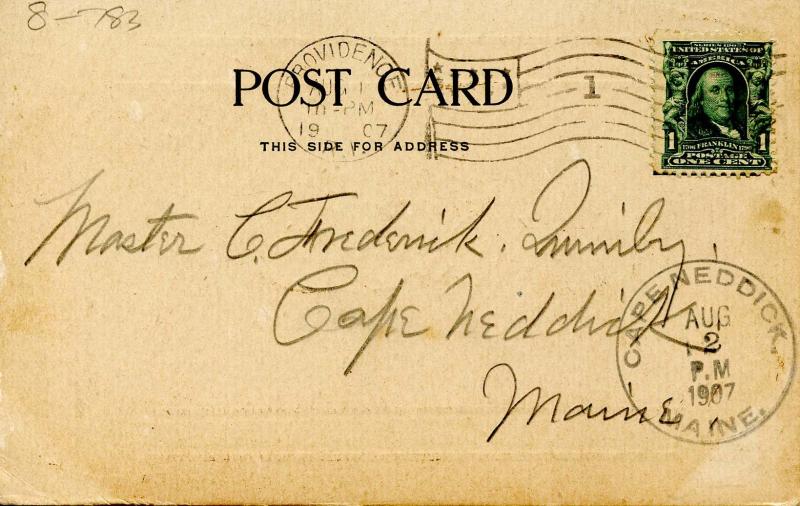 8-783
PROVIDENCE
PM
1907
1
POST CARD
THIS SIDE FOR ADDRESS
SERIES 1902
UNITED STATES OF
AMERICA
1706 FRANKLIN 1790
1 POSTAGE 1
ONE CENT
Master C. Frederick Quimby,
Cape Neddick
Maine
CAPE NEDDICK,
AUG
2
P.M
1907
MAINE.